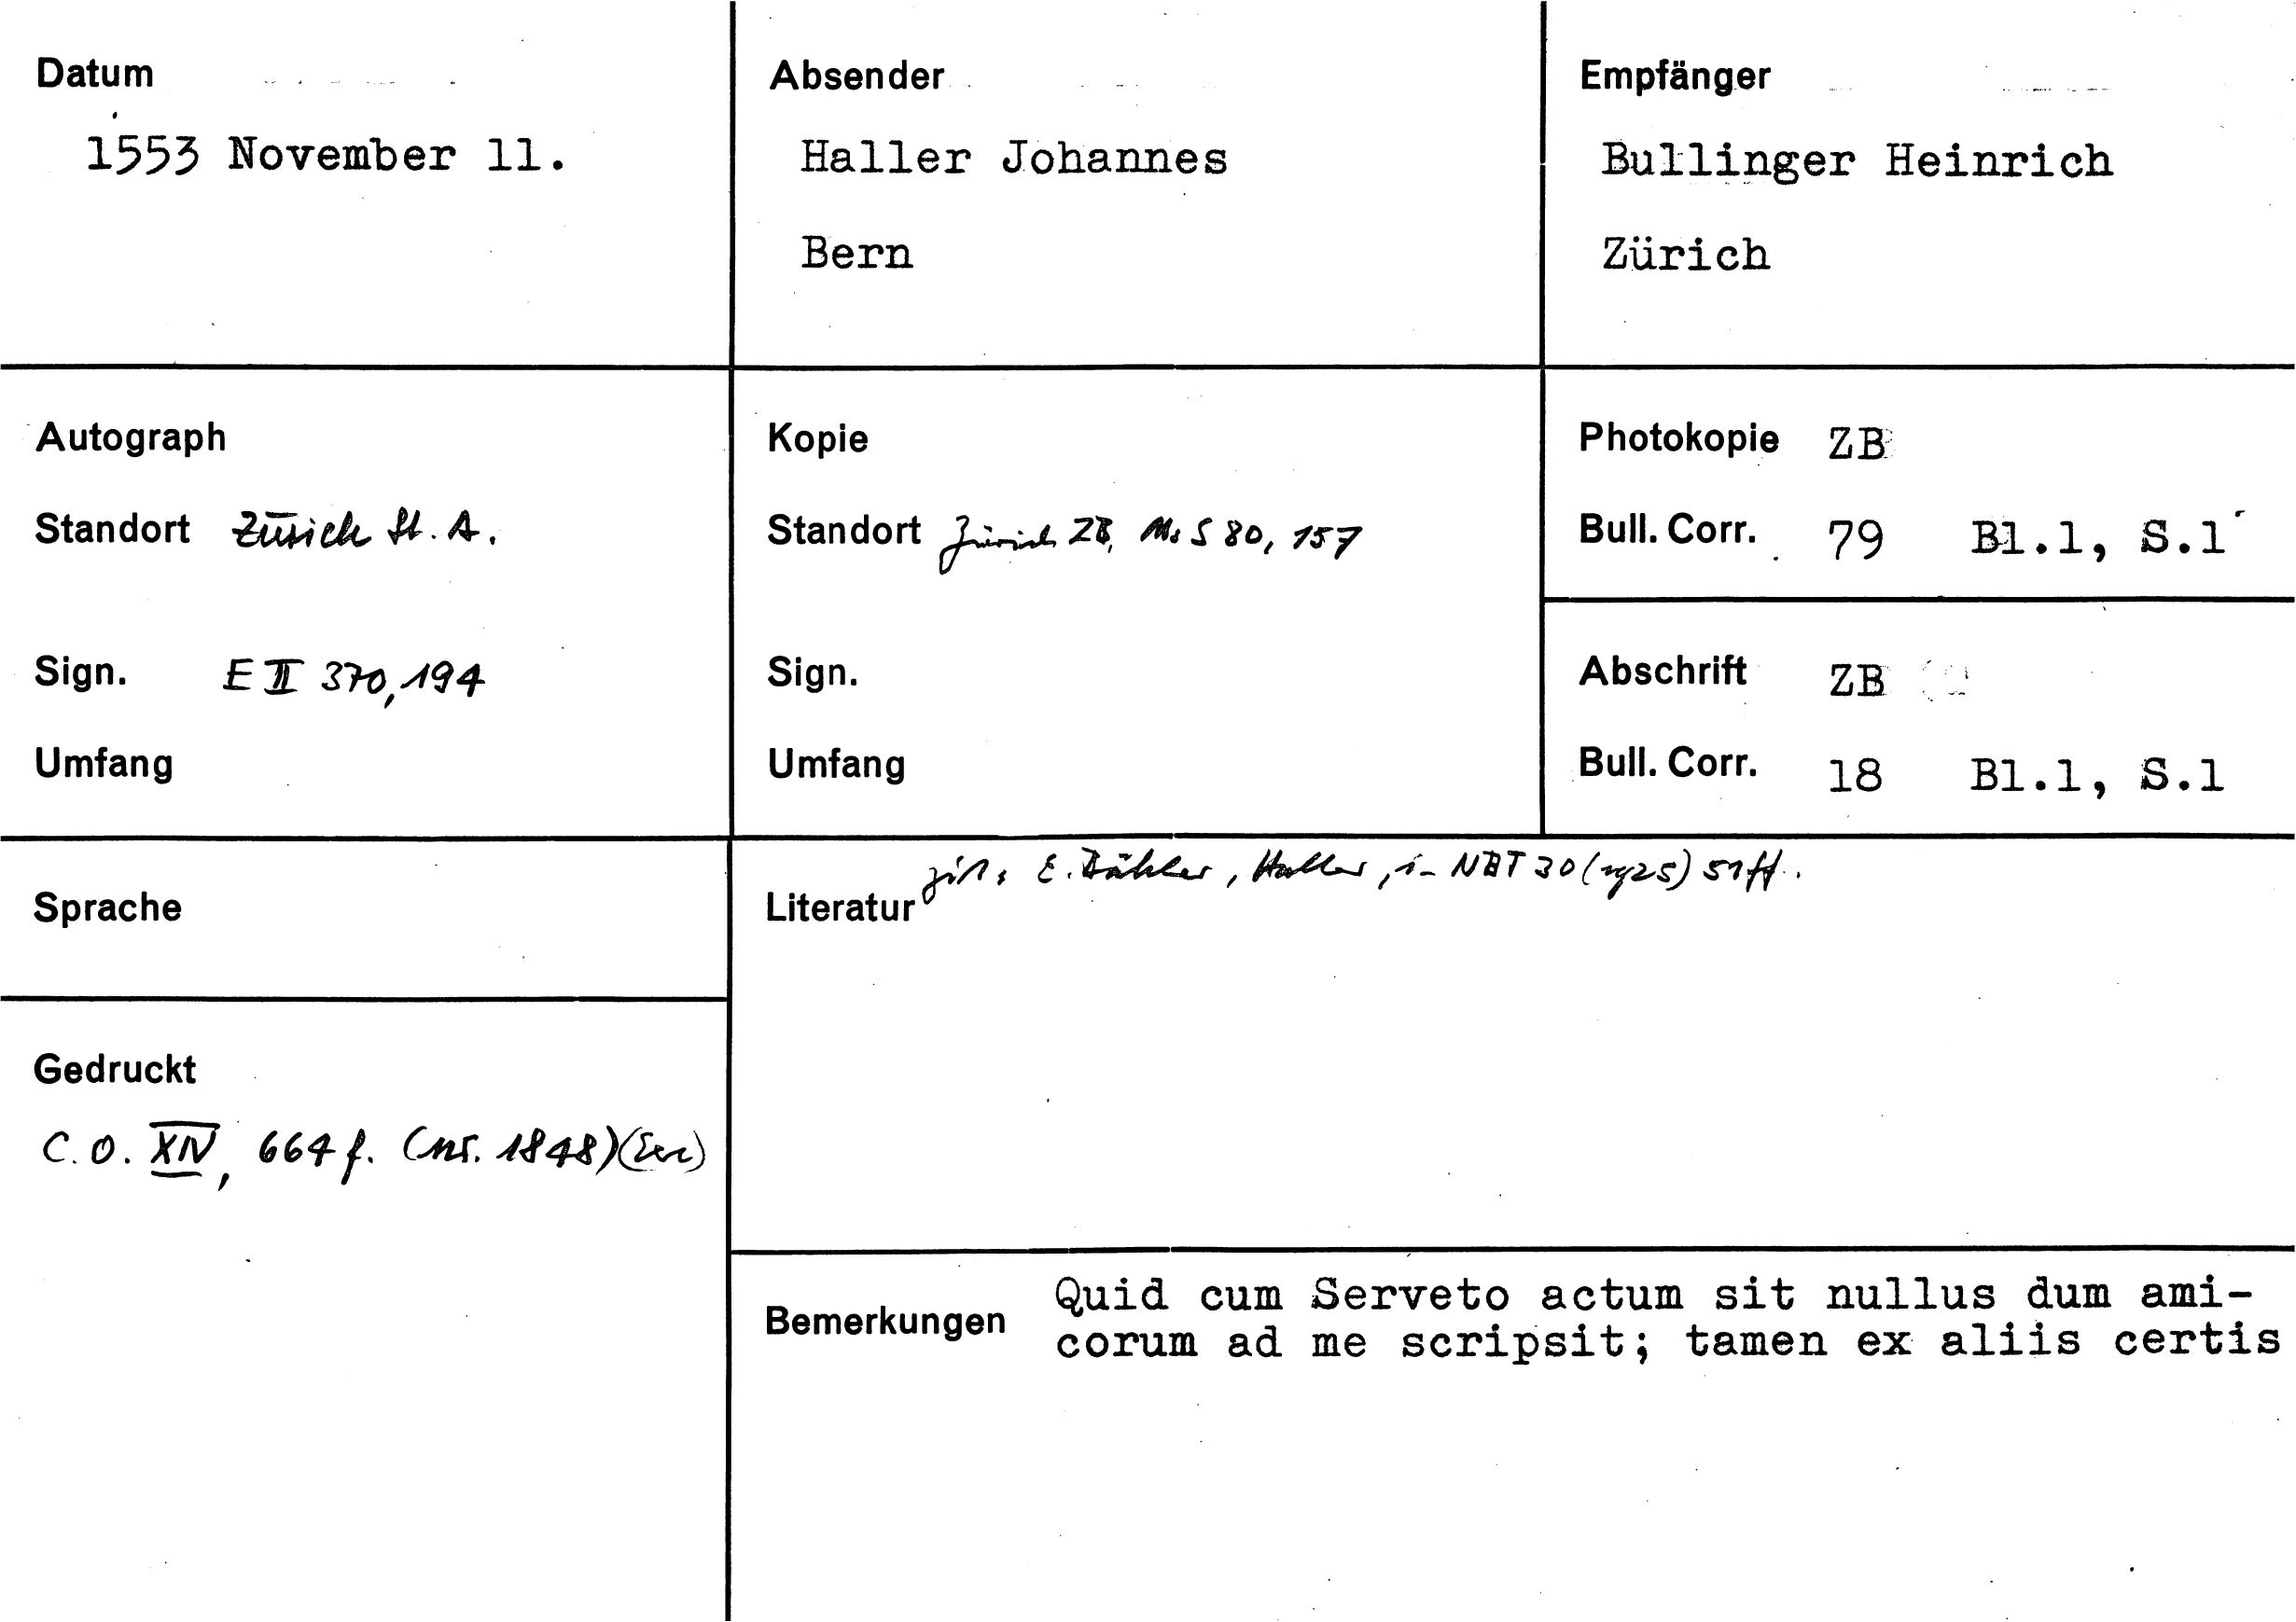 Datum
1553 November 11.
Absender
Haller Johannes
Bern
Empfänger
Bullinger Heinrich
Zürich
Autograph
Standort Zürich St. A.
Sign. E II 370, 194
Umfang
Kopie
Standort Zürich ZB, Ms S 80, 157
Sign.
Umfang
Photokopie ZB
Bull. Corr. 79 Bl.1, S.1
Abschrift ZB
Bull. Corr. 18 Bl.1, S.1
Sprache
Gedruckt
C. O. XIV, 664 f. (nr. 1848)
Literatur zit. E. Bähler, Haller, in NBT 30 (1925) 51 ff.
Bemerkungen Quid cum Serveto actum sit nullus dum ami-
corum ad me scripsit; tamen ex aliis certis